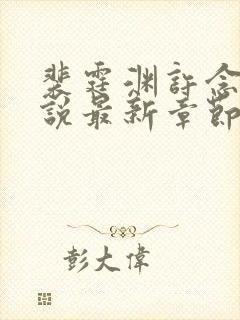 裴霆渊許念
說最新章節
彭大偉